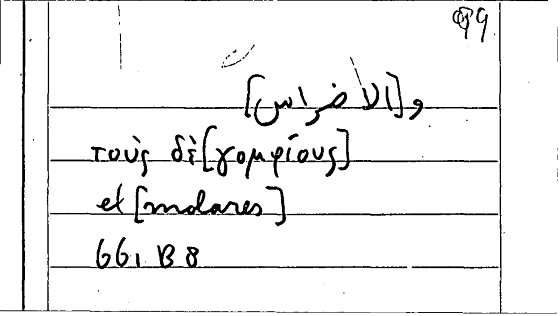 99
و[الاضراس]
τοὺς δὲ [γομφίους]
et [molares]
661 B 8